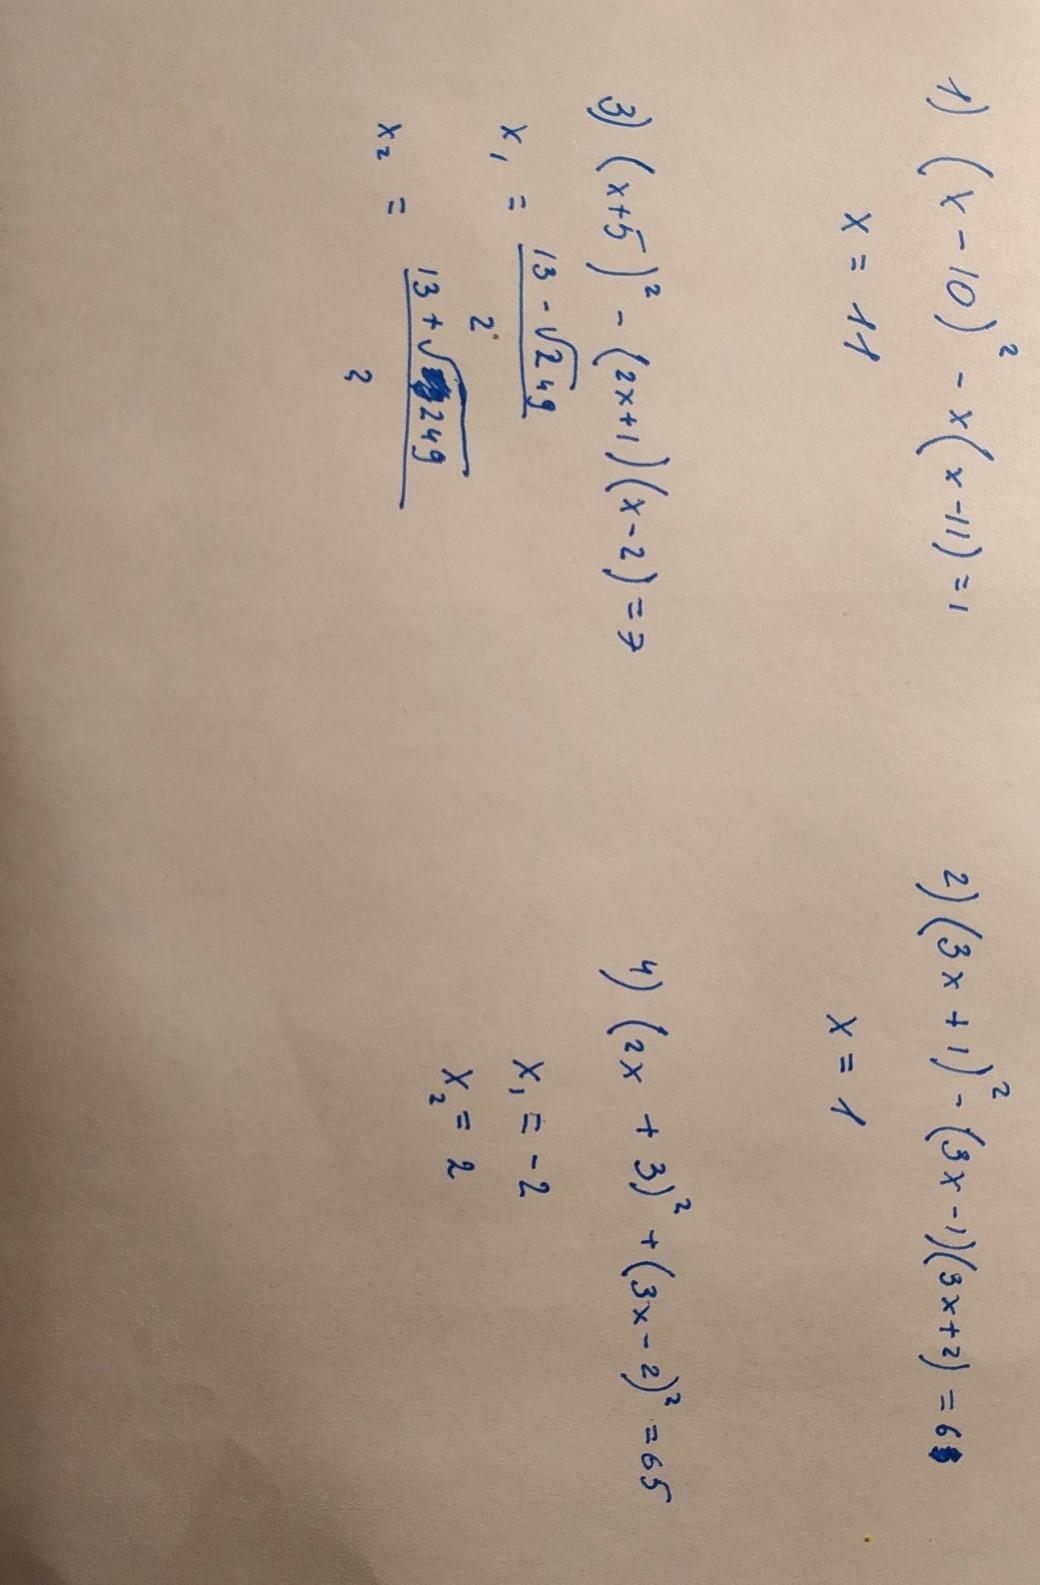 1) (x - 10)² - x(x - 11) = 1
x = 11
2) (3x + 1)² - (3x - 1)(3x + 2) = 6
x = 1
3) (x+5)² - (2x+1)(x-2) = 7
x₁ = 13 - √249
2
x₂ = 13 + √249
2
4) (2x + 3)² + (3x - 2)² = 65
x₁ = -2
x₂ = 2